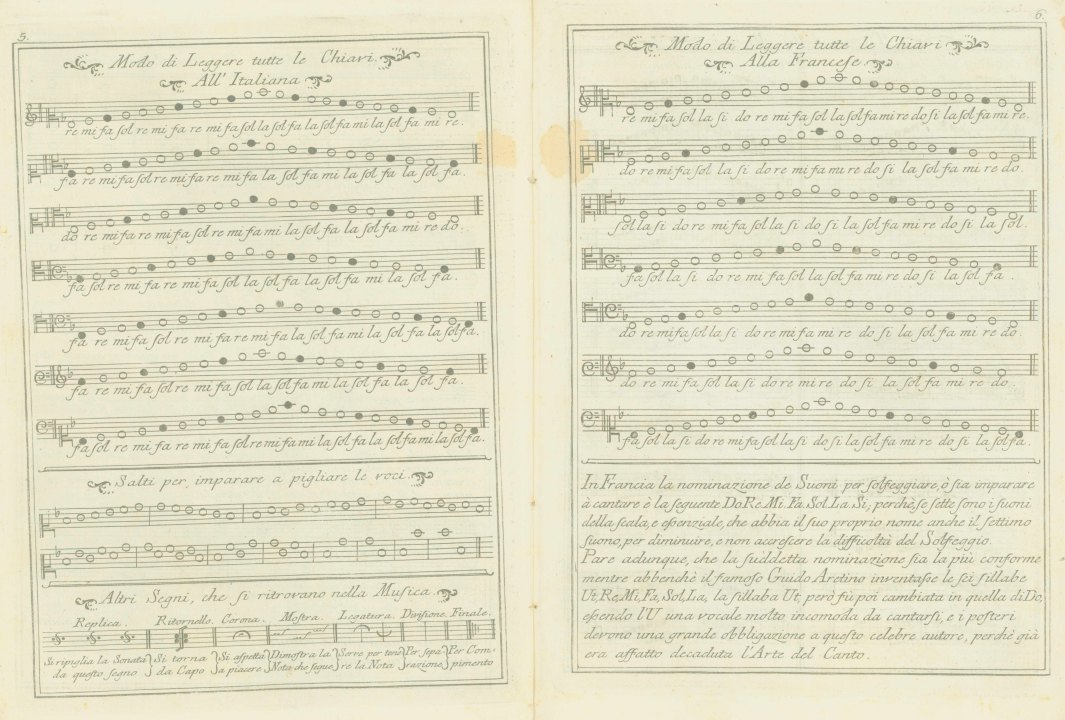 5.
Modo di Leggere tutte le Chiavi.
All' Italiana
re mi fa sol re mi fa re mi fa sol la sol fa la sol fa mi la sol fa mi re.
fa re mi fa sol re mi fa re mi fa la sol fa mi la sol fa la sol fa.
do re mi fa re mi fa sol re mi fa mi la sol fa la sol fa mi re do.
fa sol re mi fa re mi fa sol la sol fa la sol fa mi la sol fa.
fa re mi fa sol re mi fa re mi fa sol fa mi la sol fa la sol fa.
fa re mi fa sol re mi fa sol la sol fa mi la sol fa la sol fa.
fa sol re mi fa re mi fa sol re mi fa mi la sol fa la sol fa mi la sol fa.
Salti per imparare a pigliare le voci.
Altri Segni, che si ritrovano nella Musica.
Replica. Ritornello. Corona. Mostra. Legatura. Divisione. Finale.
Si ripiglia la Sonata Si torna Si aspetta Dimostra la Serve per tene Per sepa Per Com-
da questo segno da Capo a piacere Nota che segue re la Nota razione pimento
6.
Modo di Leggere tutte le Chiavi
Alla Francese
re mi fa sol la si do re mi fa sol la sol fa mi re do si la sol fa mi re.
do re mi fa sol la si do re mi fa mi re do si la sol fa mi re do.
sol la si do re mi fa sol la si do si la sol fa mi re do si la sol.
fa sol la si do re mi fa sol la sol fa mi re do si la sol fa.
do re mi fa sol la si do re mi fa mi re do si la sol fa mi re do.
do re mi fa sol la si do re mi re do si la sol fa mi re do.
fa sol la si do re mi fa sol la si do si la sol fa mi re do si la sol fa.
In Francia la nominazione de Suoni per solfeggiare, ò sia imparare
à cantare è la seguente Do Re Mi Fa Sol La Si; perchè, se sette sono i suoni
della scala, e essenziale, che abbia il suo proprio nome anche il settimo
suono, per diminuire, e non accrescere la difficoltà del Solfeggio.
Pare adunque, che la suddetta nominazione sia la più conforme
mentre abbenchè il famoso Guido Aretino inventasse le sei sillabe
Ut, Re, Mi, Fa, Sol, La, la sillaba Ut, però fù poi cambiata in quella di Do,
essendo l'U una vocale molto incomoda da cantarsi, e i posteri
devono una grande obbligazione a questo celebre autore, perchè già
era affatto decaduta l'Arte del Canto.